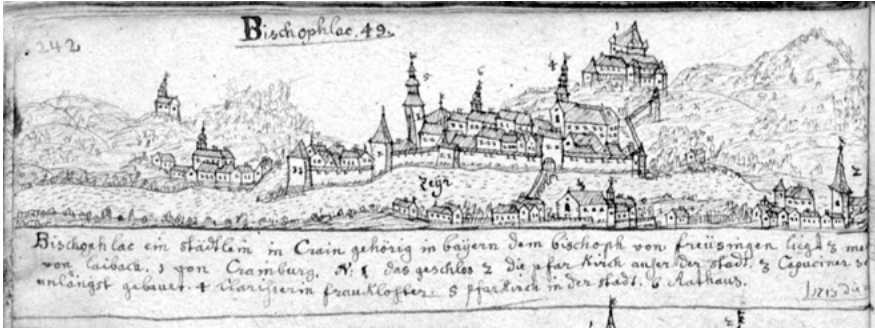 242
Bischophlac. 49.
1
5
6
4
Zeyr
3
2
Bischophlac ein städtlein in Crain gehörig in bayern dem bischoph von freüsingen ligt 3
von Laibach. 1 von Cramburg. N: 1 das geschlos 2 die pfar Kirch auser der stadt. 3 Capuciner
unlängst gebauet. 4 Clarisserin frauKloster. 5 pfarKirch in der stadt. 6 Rathaus.
1713 die